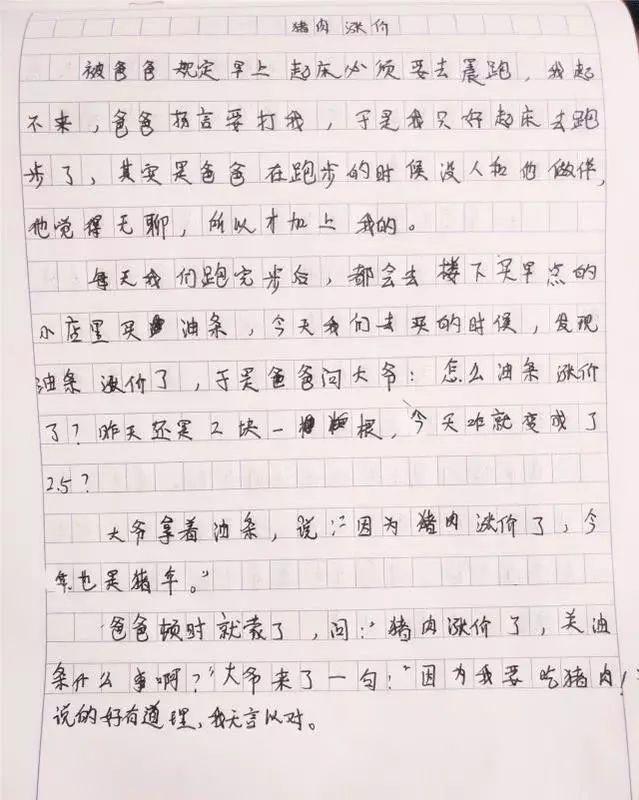 猪肉涨价
被爸爸规定早上起床必须要去晨跑,我起
不来,爸爸扬言要打我,于是我只好起床去跑
步了,其实是爸爸在跑步的时候没人和他做伴,
他觉得无聊,所以才加上我的。
每天我们跑完步后,都会去楼下买早点的
小店里买油条,今天我们去买的时候,发现
油条涨价了,于是爸爸问大爷:怎么油条涨价
了?昨天还是2块一根,今天咋就变成了
2.5?
大爷拿着油条,说:"因为猪肉涨价了,今
年也是猪年。"
爸爸顿时就蒙了,问:"猪肉涨价了,关油
条什么事啊?"大爷来了一句:"因为我要吃猪肉!"
说的好有道理,我无言以对。